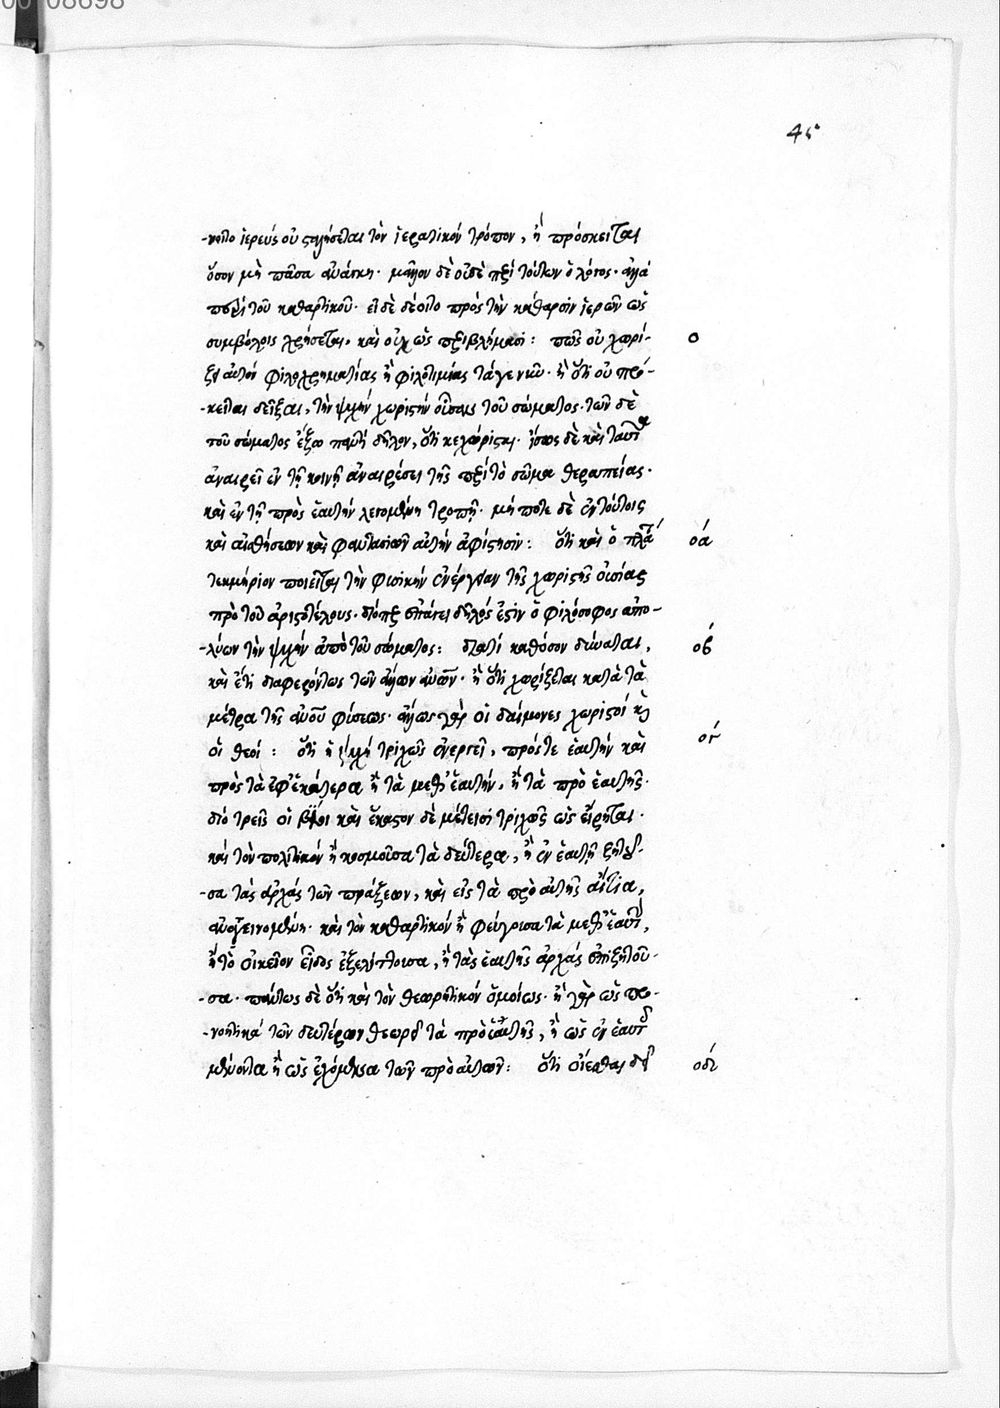 00008698
45
-νοιτο ἱερεύς οὐ στήσεται τὸν ἱερατικόν τρόπον, ἢ πρόσκειται
ὅσον μὴ πᾶσα ἀνάγκη. μᾶλλον δὲ οὐδὲ περὶ τούτων ὁ λόγος. ἀλλὰ
περὶ τοῦ καθαρτικοῦ. εἰ δὲ δέοιτο πρὸς τὴν κάθαρσιν ἱερῶν ὡς
συμβόλοις χρήσεται. καὶ οὐχ ὡς περιβλήμασι: πῶς οὐ χωρί- ο
ζει αὐτὸν φιλοχρηματίας ἢ φιλοτιμίας τά γε νῦν. ἢ ὅτι οὐ πρό-
-κειται δεῖξαι, τὴν ψυχήν χωριστήν οὖσαν τοῦ σώματος. τῶν δὲ
τοῦ σώματος ἔξω παντὶ δῆλον, ὅτι κεχώρισται. ἴσως δὲ καὶ ταῦτα
ἀναιρεῖ ἐν τῇ κοινῇ ἀναιρέσει τῆς περὶ τὸ σῶμα θεραπείας.
καὶ ἐν τῇ πρὸς ἑαυτήν λεγομένῃ τροπῇ. μή ποτε δὲ ἐν τούτοις
καὶ αἰσθήσεων καὶ φαντασιῶν αὐτήν ἀφίστησιν: ὅτι καὶ ὁ πλά οά
τεκμήριον ποιεῖται τὴν φυσικήν ἐνέργειαν τῆς χωριστῆς οὐσίας
πρὸ τοῦ ἀριστοτέλους. διόπερ ἐπάγει δῆλός ἐστιν ὁ φιλόσοφος ἀπο-
-λύων τὴν ψυχήν ἀπὸ τοῦ σώματος: διατί καθόσον δύναται, οβ
καὶ ἔτι διαφερόντως τῶν ἄλλων ἀνων. ἢ ὅτι χωρίζεται κατὰ τὰ
μέτρα τῆς ἀνου φύσεως. ἄλλως γὰρ οἱ δαίμονες χωριστοί καὶ
οἱ θεοί: ὅτι ἡ ψυχή τριχῶς ἐνεργεῖ, πρός τε ἑαυτήν καὶ ογ
πρὸς τὰ ἐφ' ἑκάτερα ἢ τὰ μεθ' ἑαυτήν, ἢ τὰ πρὸ ἑαυτῆς.
διὸ τρεῖς οἱ βίοι καὶ ἕκαστον δὲ μέτεισι τριχῶς ὡς εἴρηται.
καὶ τὸν πολιτικόν ἢ κοσμοῦσα τὰ δεύτερα, ἢ ἐν ἑαυτῇ ζητοῦ-
-σα τὰς ἀρχάς τῶν πράξεων, καὶ εἰς τὰ πρὸ αὐτῆς αἴτια,
ἀνατεινομένη. καὶ τὸν καθαρτικόν ἢ φεύγουσα τὰ μεθ' ἑαυτήν,
ἢ τὸ οἰκεῖον εἶδος ἐξελίττουσα, ἢ τὰς ἑαυτῆς ἀρχάς ἐπιζητοῦ-
-σα. πάντως δὲ ὅτι καὶ τὸν θεωρητικόν ὁμοίως. ἢ γὰρ ὡς προ-
-νοητικά τῶν δευτέρων θεωρεῖ τὰ πρὸ ἑαυτῆς, ἢ ὡς ἐν ἑαυτοῖς
μένοντα ἢ ὡς ἐχόμενα τῶν πρὸ αὐτῶν: ὅτι οἴεσθαι δεῖ οδ